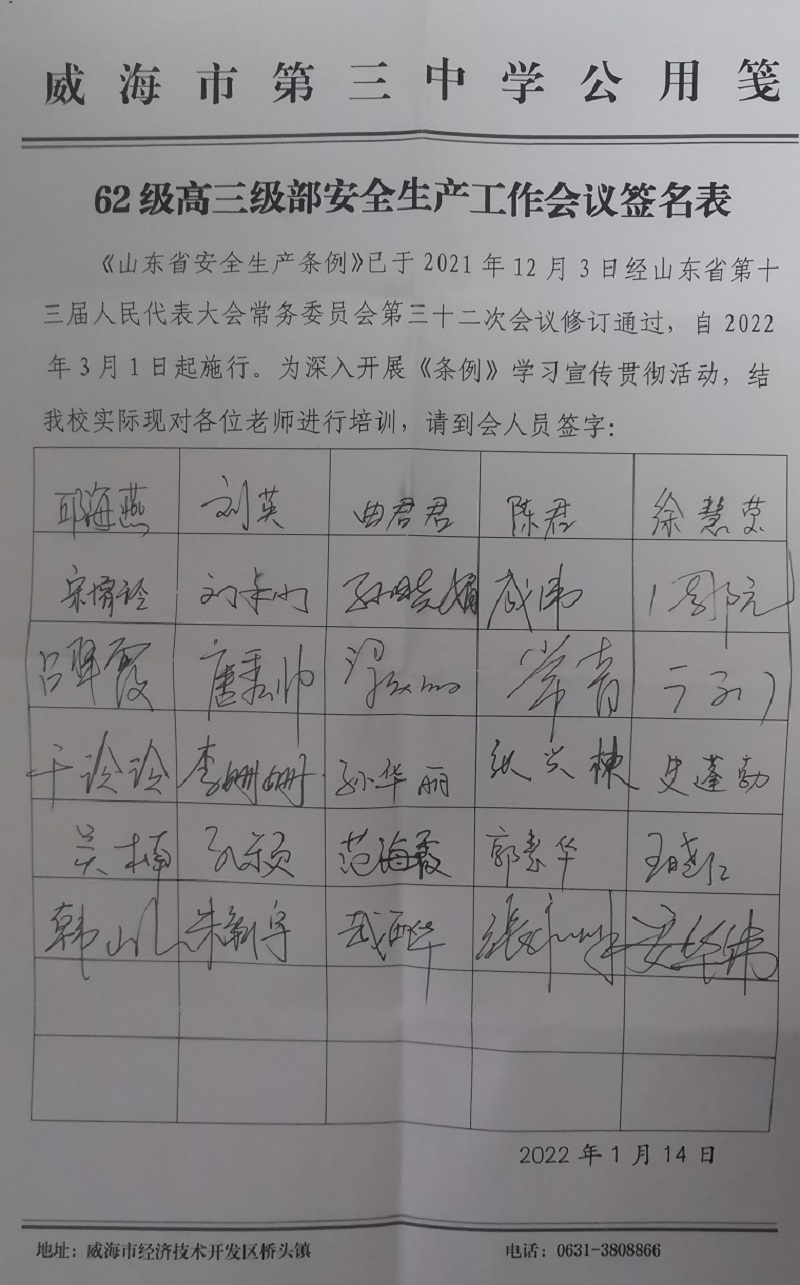 威海市第三中学公用笺
62级高三级部安全生产工作会议签名表
《山东省安全生产条例》已于2021年12月3日经山东省第十
三届人民代表大会常务委员会第三十二次会议修订通过，自2022
年3月1日起施行。为深入开展《条例》学习宣传贯彻活动，结
我校实际现对各位老师进行培训，请到会人员签字：
邱海燕 刘英 曲君君 陈君 徐慧荣
戚伟
常青
李姗姗 孙华丽 张兴栋 史蓬勃
吴楠 范海霞 郭素华 王晓仁
韩山 朱新宇
2022年1月14日
地址：威海市经济技术开发区桥头镇 电话：0631-3808866